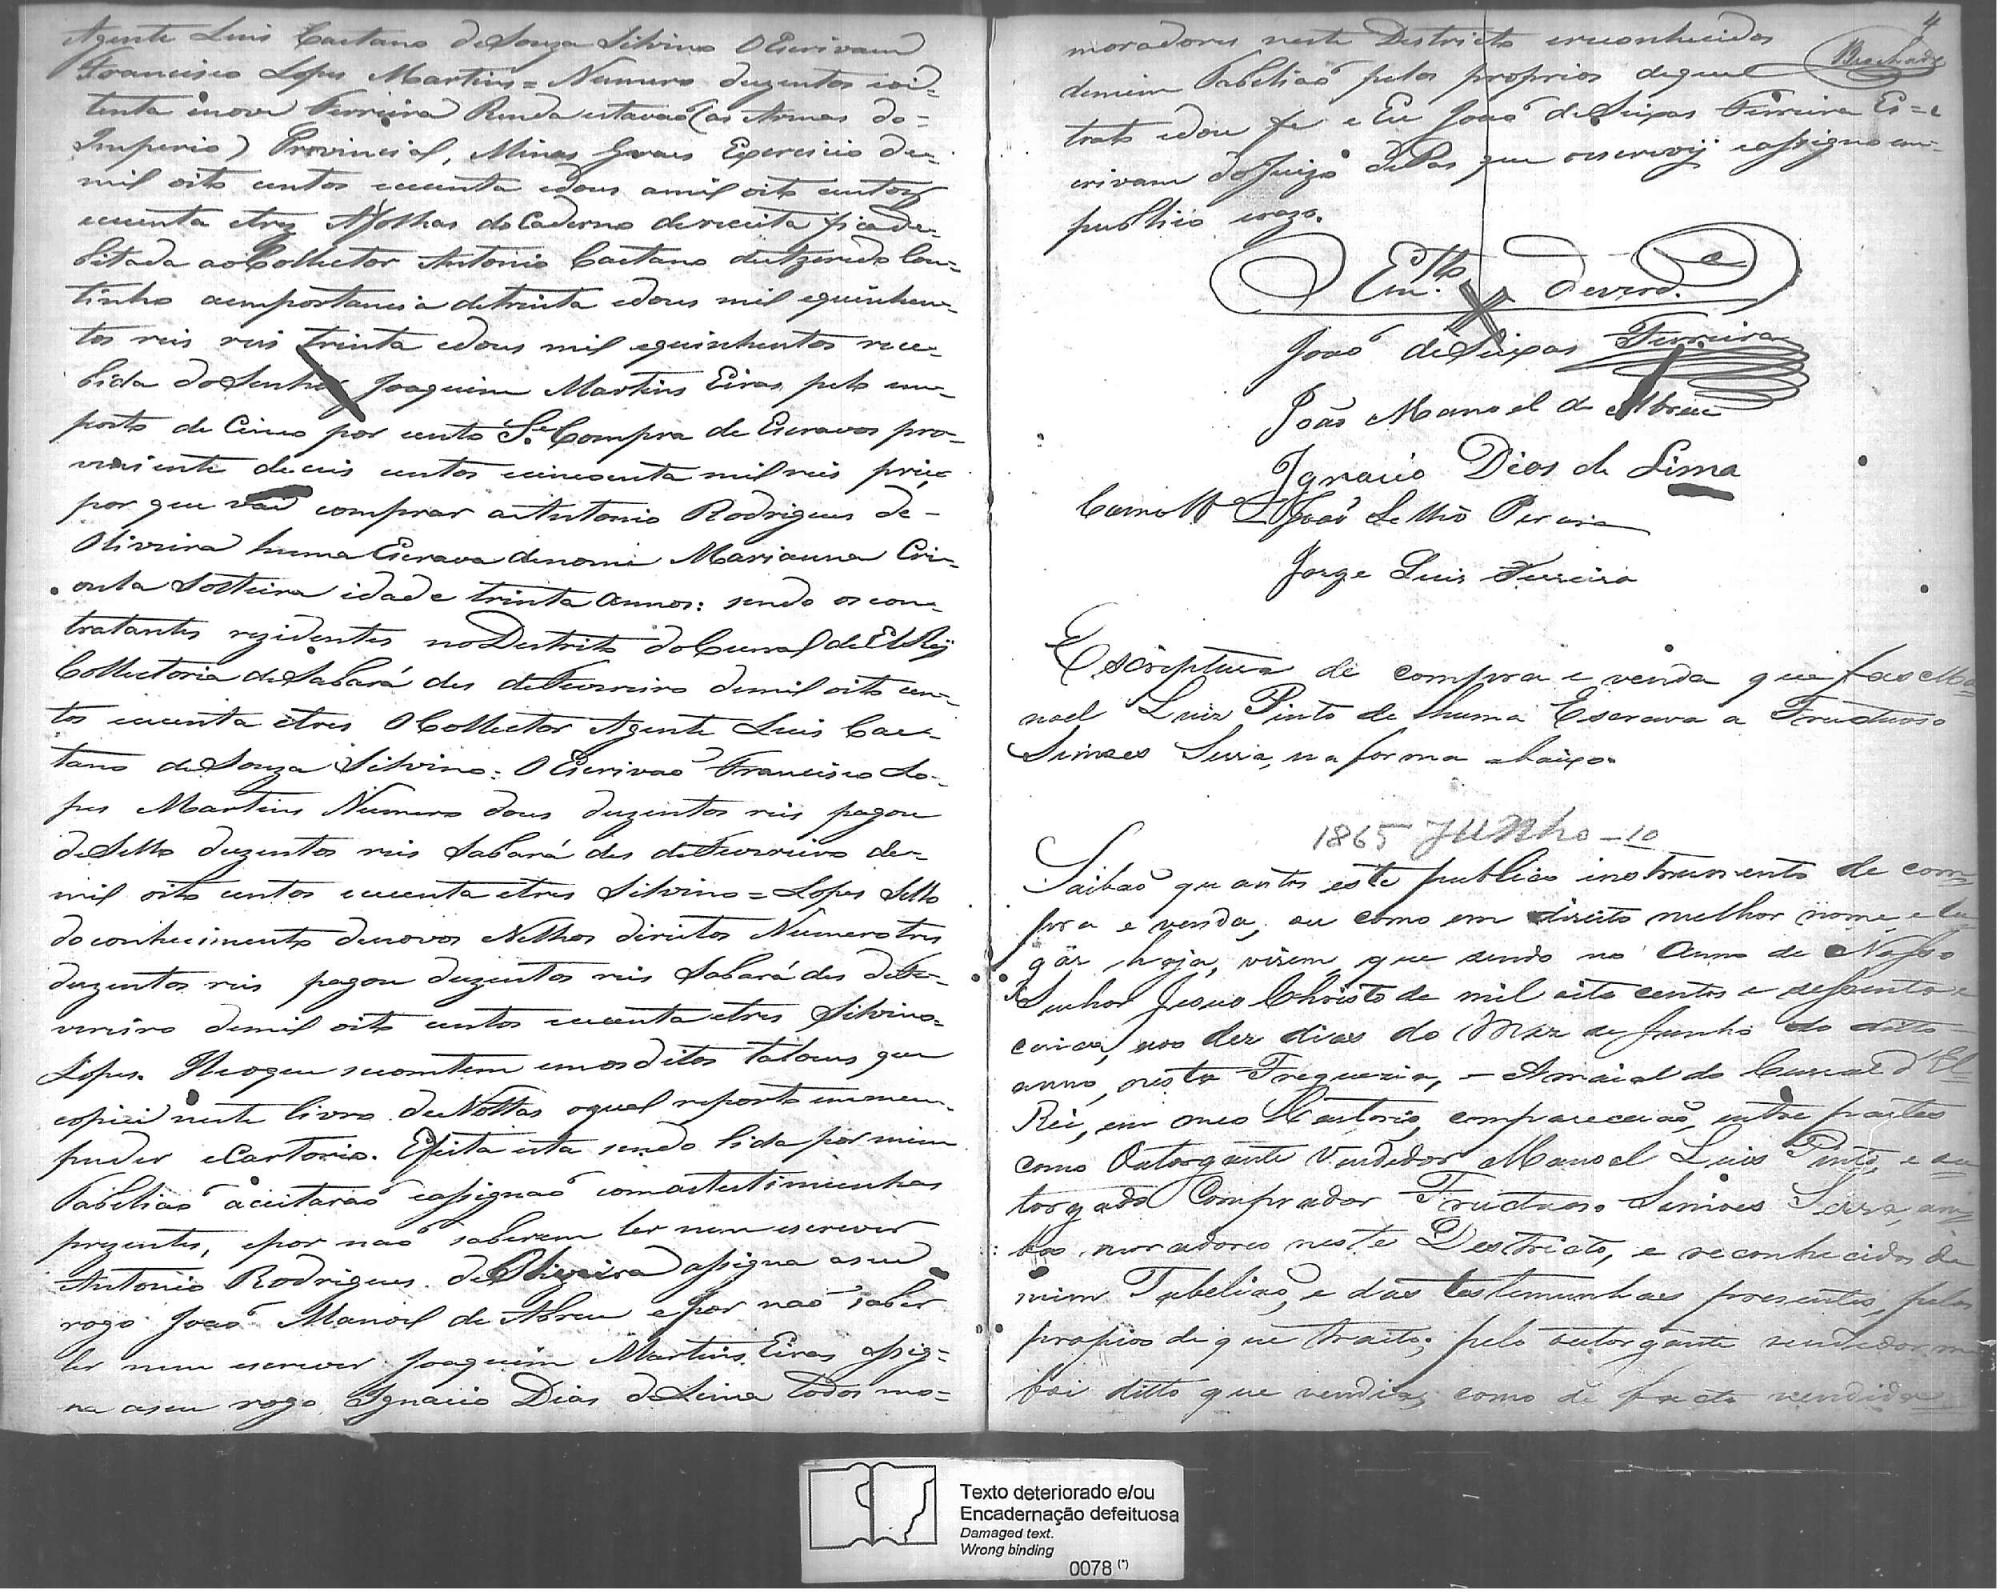 Agente Luis Caetano deSouza Silvino OEscrivam
Francisco Lopes Martins = Numero duzentos eoi-
tenta enove Ferreira Renda estavaõ (as Armas do=
Imperio) Provincial, Minas Geraes Exercicio de-
mil oito centos ececenta edous amil oito centos
cecenta etres Afolhas doCaderno dereceita ficade-
bitada aoCollector Antonio Caetano deAzeredo Cou-
tinho aemportancia detrinta edous mil equinhen-
tos reis reis trinta edous mil equinhentos rece-
bida doSenhor Joaquim Martins Eiras, pelo em-
posto de Cinco por cento Sê Compra de Escravos pro-
viniente deceis centos ecincoenta milreis priço
por que vai comprar aAntonio Rodrigues de-
Oliveira huma Escrava denome Marianna Cri-
oula Solteira idade trinta annos: sendo oscon-
tratantes rezidentes noDestrito doCurral deElRej
Collectoria deSabará des deFevereiro demil oito cen-
tos cecenta etres OCollector Agente Luis Cae-
tano deSouza Silvino. OEscrivaõ Francisco Lo-
pes Martins Numero dous duzentos reis pagou
deSello duzentos reis Sabará des deFevereiro de-
mil oito centos ececenta etres Silvino = Lopes Sello
doconhecimento denovos eVelhos direitos Numero tres
duzentos reis pagou duzentos reis Sabará des deFe-
vereiro demil oito centos ececenta etres Silvino-
Lopes. Heoque secontem emos ditos taloens que
copiei neste livro deNottas oqual reporto emmeu-
puder eCartorio. Efeita esta sendo lida por mim
Tabeliaõ aceitaraõ eassignaõ comastestimunhas
prezentes, epor naõ saberem ler nem escrever
Antonio Rodrigues deOliveira assigna aseu
rogo Joaõ Manoel de Abreu epor naõ saber
ler nem escrever Joaquim Martins Eiras assig=
na aseu rogo Ignacio Dias deLima todos mo=
4
moradores neste Destricto ereconhecidos
demim Tabeliaõ pelos proprios dequel
trato edou fe e Eu Joaõ deSeixas Ferreira Es=
crivam doJuizo dePas que oescrevij eassigno em-
publico erazo.
Em Tto. deverd.
Joaõ deSeixas Ferreira
João Manoel de Abreu
Ignacio Dias de Lima
Joaõ Pereira
Jorge Luis Ferreira
Escriptura de compra e venda que fas Ma=
noel Luiz Pinto de huma Escrava a Fructuoso
Simoes Serra, na forma abaixo.
1865 JUNho - 10
Saibaõ quantos este publico instrumento de com
pra e venda, ou como em direito melhor nome e lu
gar haja, virem, que sendo no Anno de Nosso
Senhor Jesus Christo de mil oito centos e sessenta e
cinco, aos dez dias do Mez de Junho do ditto
anno, nesta Freguezia, - Arraial do Curral d'El=
Rei, em meo Cartorio, compareceraõ, entre partes
como Outorgante Vendedor Manoel Luis Pinto, e ou
torgado Comprador Fructuoso Simoes Serra, am
bos moradores neste Destricto, e reconhecidos de
mim Tabeliaõ, e das testemunhas presentes, pelos
propios de que tracto; pelo outorgante vendedor me
foi ditto que vendia, como de facto vendido
Texto deteriorado e/ou
Encadernação defeituosa
Damaged text.
Wrong binding
0078 (*)